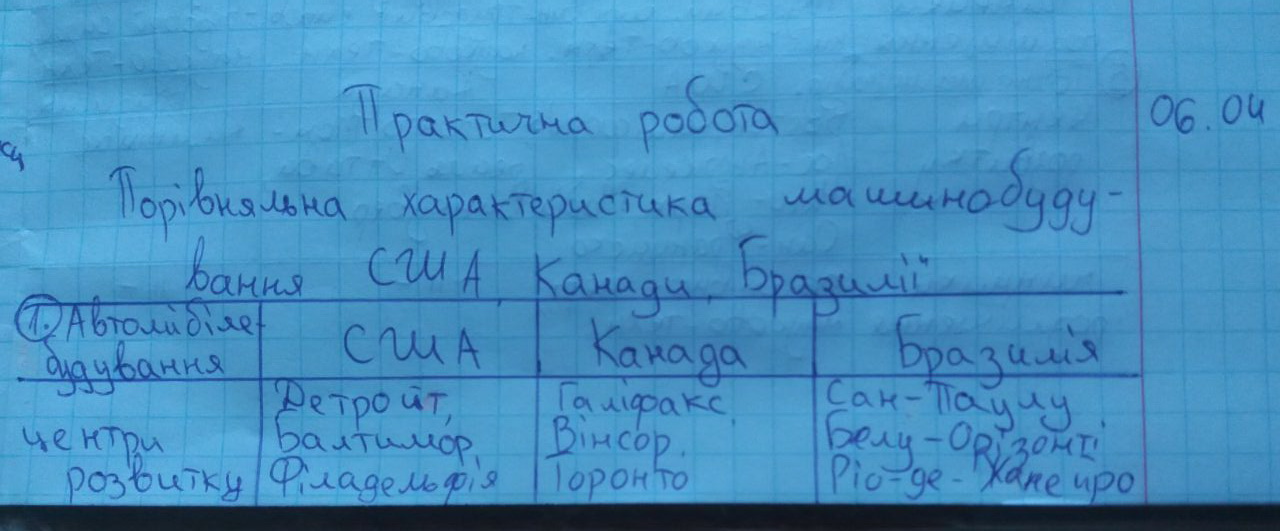 Практична робота
06.04
Порівняльна характеристика машинобуду-
вання США, Канади, Бразилії"
1. Автомобіле-
будування
США
Канада
Бразилія
центри
розвитку
Детройт,
Балтимор,
Філадельфія
Галіфакс,
Вінсор,
Торонто
Сан-Паулу
Белу-Орізонті
Ріо-де-Жанейро